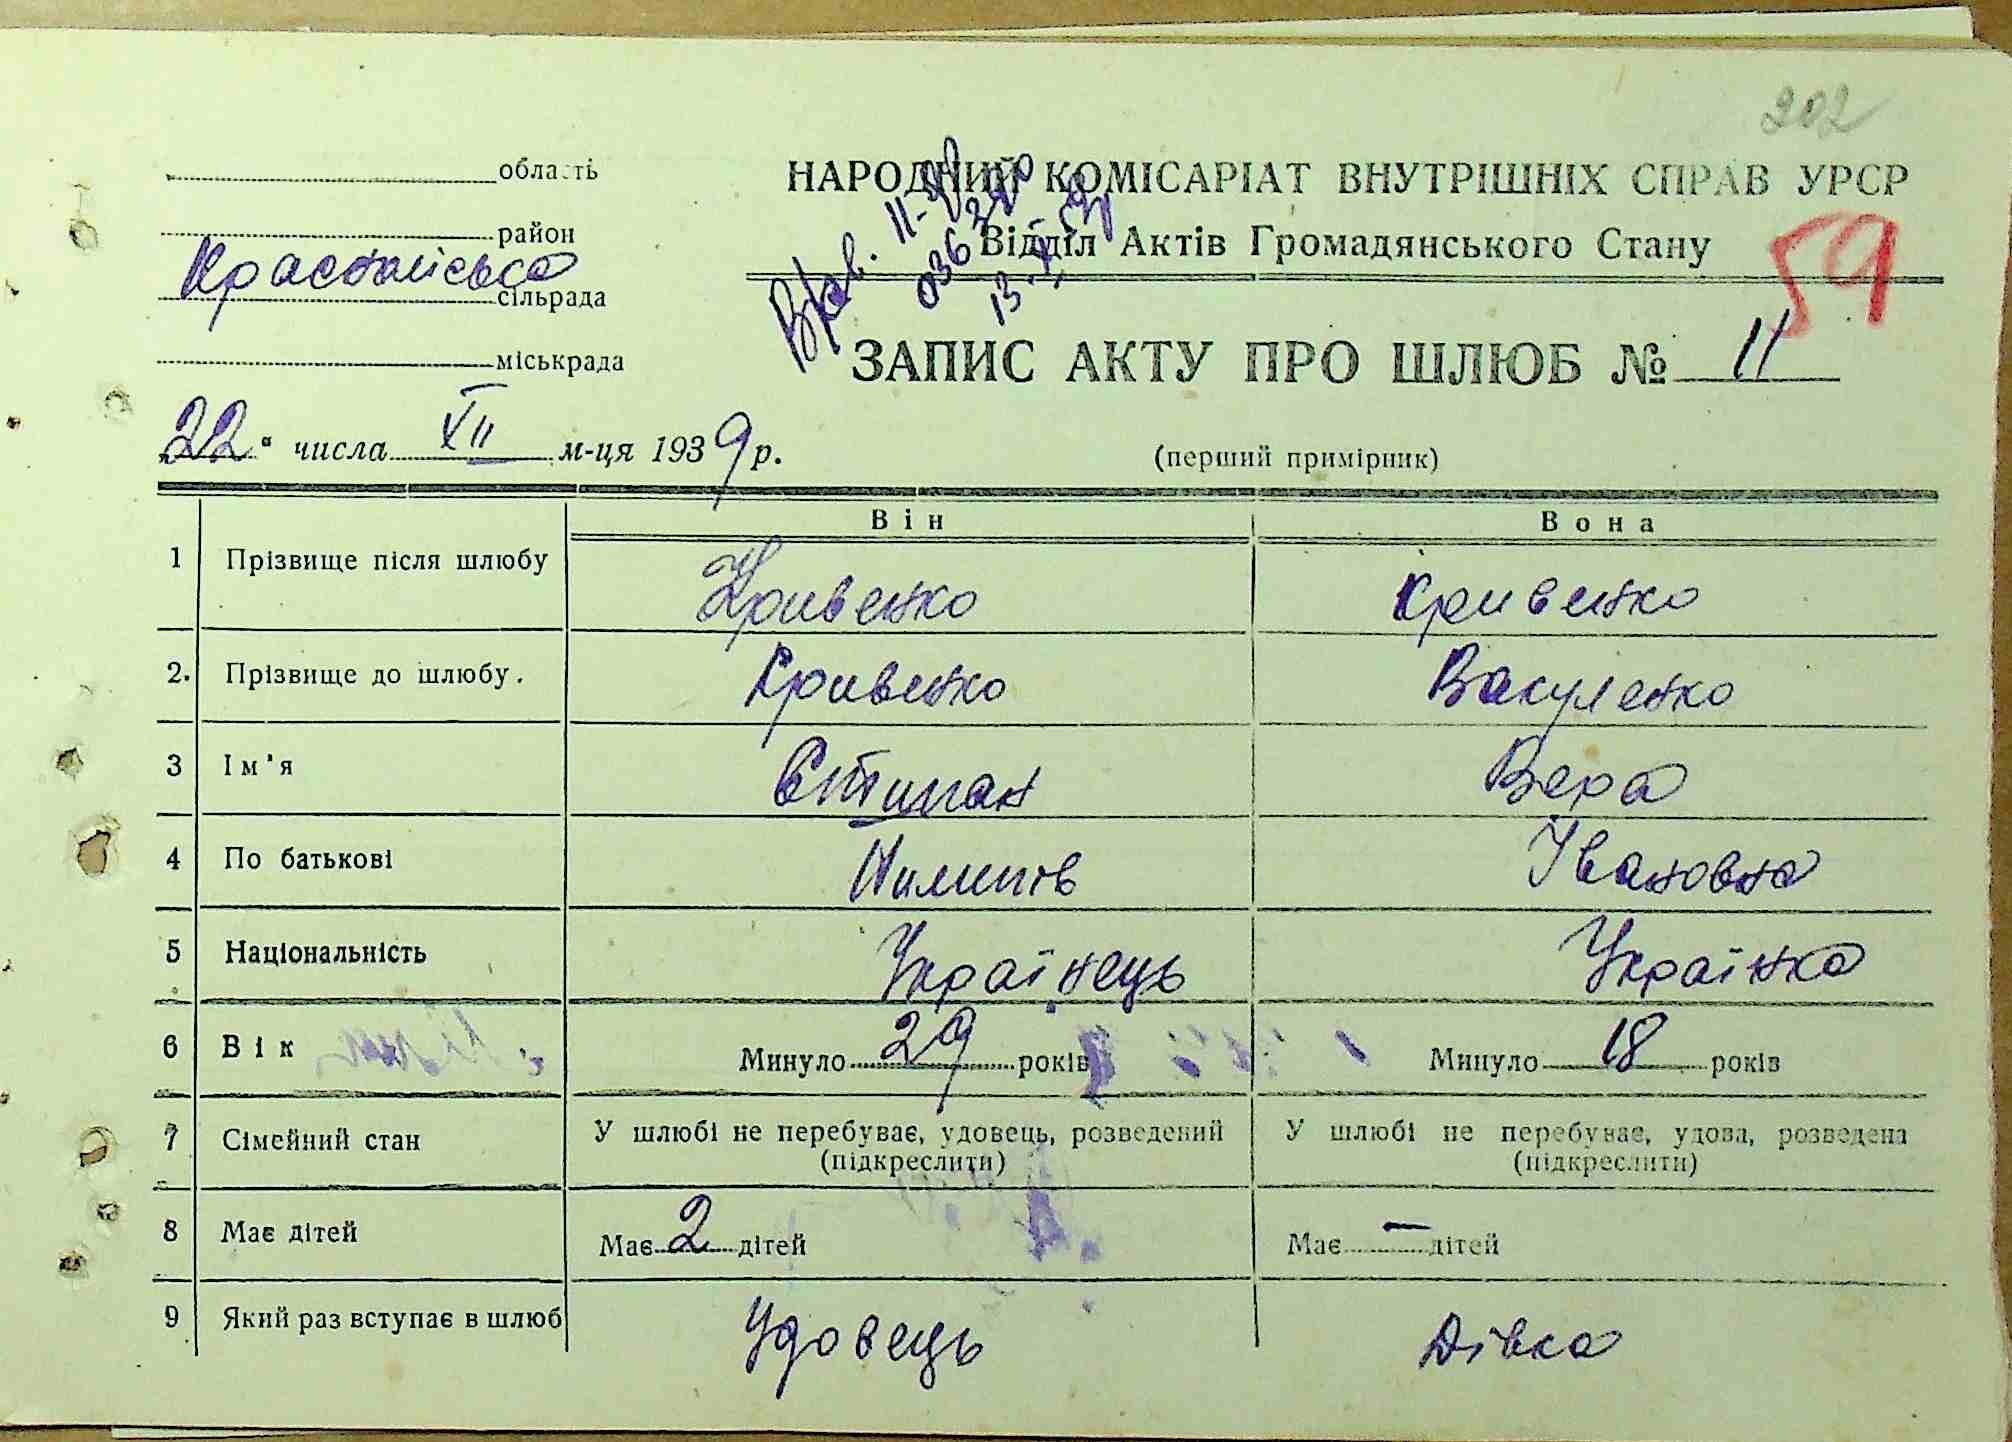 202
область
НАРОДНИЙ КОМІСАРІАТ ВНУТРІШНІХ СПРАВ УРСР
район
Відділ Актів Громадянського Стану
59
сільрада
міськрада
ЗАПИС АКТУ ПРО ШЛЮБ № 11
22 числа XII м-ця 1939 р.
(перший примірник)
Він Вона
1 Прізвище після шлюбу Кривенко Кривенко
2. Прізвище до шлюбу. Кривенко Вакуленко
3 Ім'я Степан Вера
4 По батькові Пилипів Івановна
5 Національність Українець Українка
6 Вік Минуло 29 років Минуло 18 років
7 Сімейний стан У шлюбі не перебуває, удовець, розведений У шлюбі не перебуває, удова, розведена
(підкреслити) (підкреслити)
8 Має дітей Має 2 дітей Має — дітей
9 Який раз вступає в шлюб Удовець Дівка